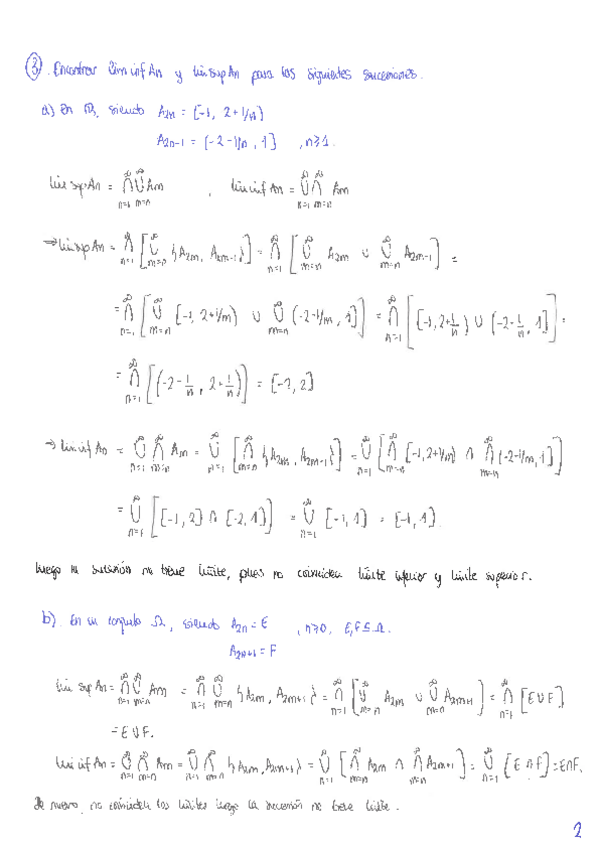 ③. Encontrar lim inf An y lim sup An para las siguientes sucesiones.
a) En ℝ, siendo A₂ₙ = [-1, 2+1/n)
A₂ₙ₋₁ = (-2-1/n, 1] , n≥1.
lim sup An = ⋂_{n=1}^∞ ⋃_{m=n}^∞ Am , lim inf An = ⋃_{n=1}^∞ ⋂_{m=n}^∞ Am
→ lim sup An = ⋂_{n=1}^∞ [⋃_{m=n}^∞ {A₂ₘ, A₂ₘ₋₁}] = ⋂_{n=1}^∞ [⋃_{m=n}^∞ A₂ₘ ∪ ⋃_{m=n}^∞ A₂ₘ₋₁] =
= ⋂_{n=1}^∞ [⋃_{m=n}^∞ [-1, 2+1/m) ∪ ⋃_{m=n}^∞ (-2-1/m, 1]] = ⋂_{n=1}^∞ [[-1, 2+1/n) ∪ (-2-1/n, 1]] =
= ⋂_{n=1}^∞ [(-2-1/n, 2+1/n)] = [-2, 2]
→ lim inf An = ⋃_{n=1}^∞ ⋂_{m=n}^∞ Am = ⋃_{n=1}^∞ [⋂_{m=n}^∞ {A₂ₘ, A₂ₘ₋₁}] = ⋃_{n=1}^∞ [⋂_{m=n}^∞ [-1, 2+1/m) ∩ ⋂_{m=n}^∞ (-2-1/m, 1]]
= ⋃_{n=1}^∞ [[-1, 2] ∩ [-2, 1]] = ⋃_{n=1}^∞ [-1, 1] = [-1, 1].
Luego la sucesión no tiene límite, pues no coinciden límite inferior y límite superior.
b). En un conjunto Ω, siendo A₂ₙ = E , n≥0, E, F ⊆ Ω.
A₂ₙ₊₁ = F
lim sup An = ⋂_{n=1}^∞ ⋃_{m=n}^∞ Am = ⋂_{n=1}^∞ ⋃_{m=n}^∞ {A₂ₘ, A₂ₘ₊₁} = ⋂_{n=1}^∞ [⋃_{m=n}^∞ A₂ₘ ∪ ⋃_{m=n}^∞ A₂ₘ₊₁] = ⋂_{n=1}^∞ [E ∪ F]
= E ∪ F.
lim inf An = ⋃_{n=1}^∞ ⋂_{m=n}^∞ Am = ⋃_{n=1}^∞ ⋂_{m=n}^∞ {A₂ₘ, A₂ₘ₊₁} = ⋃_{n=1}^∞ [⋂_{m=n}^∞ A₂ₘ ∩ ⋂_{m=n}^∞ A₂ₘ₊₁] = ⋃_{n=1}^∞ [E ∩ F] = E ∩ F.
De nuevo, no coinciden los límites luego la sucesión no tiene límite.
2